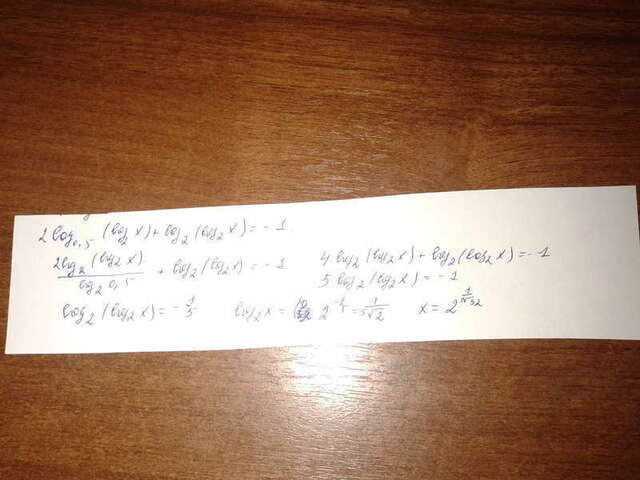 2log₀,₅ (log₂ x) + log₂ (log₂ x) = -1
2log₂ (log₂ x) / log₂ 0,5 + log₂ (log₂ x) = -1
4 log₂ (log₂ x) + log₂ (log₂ x) = -1
5 log₂ (log₂ x) = -1
log₂ (log₂ x) = -1/5 log₂ x = 2 = 1/⁵√2 x = 2